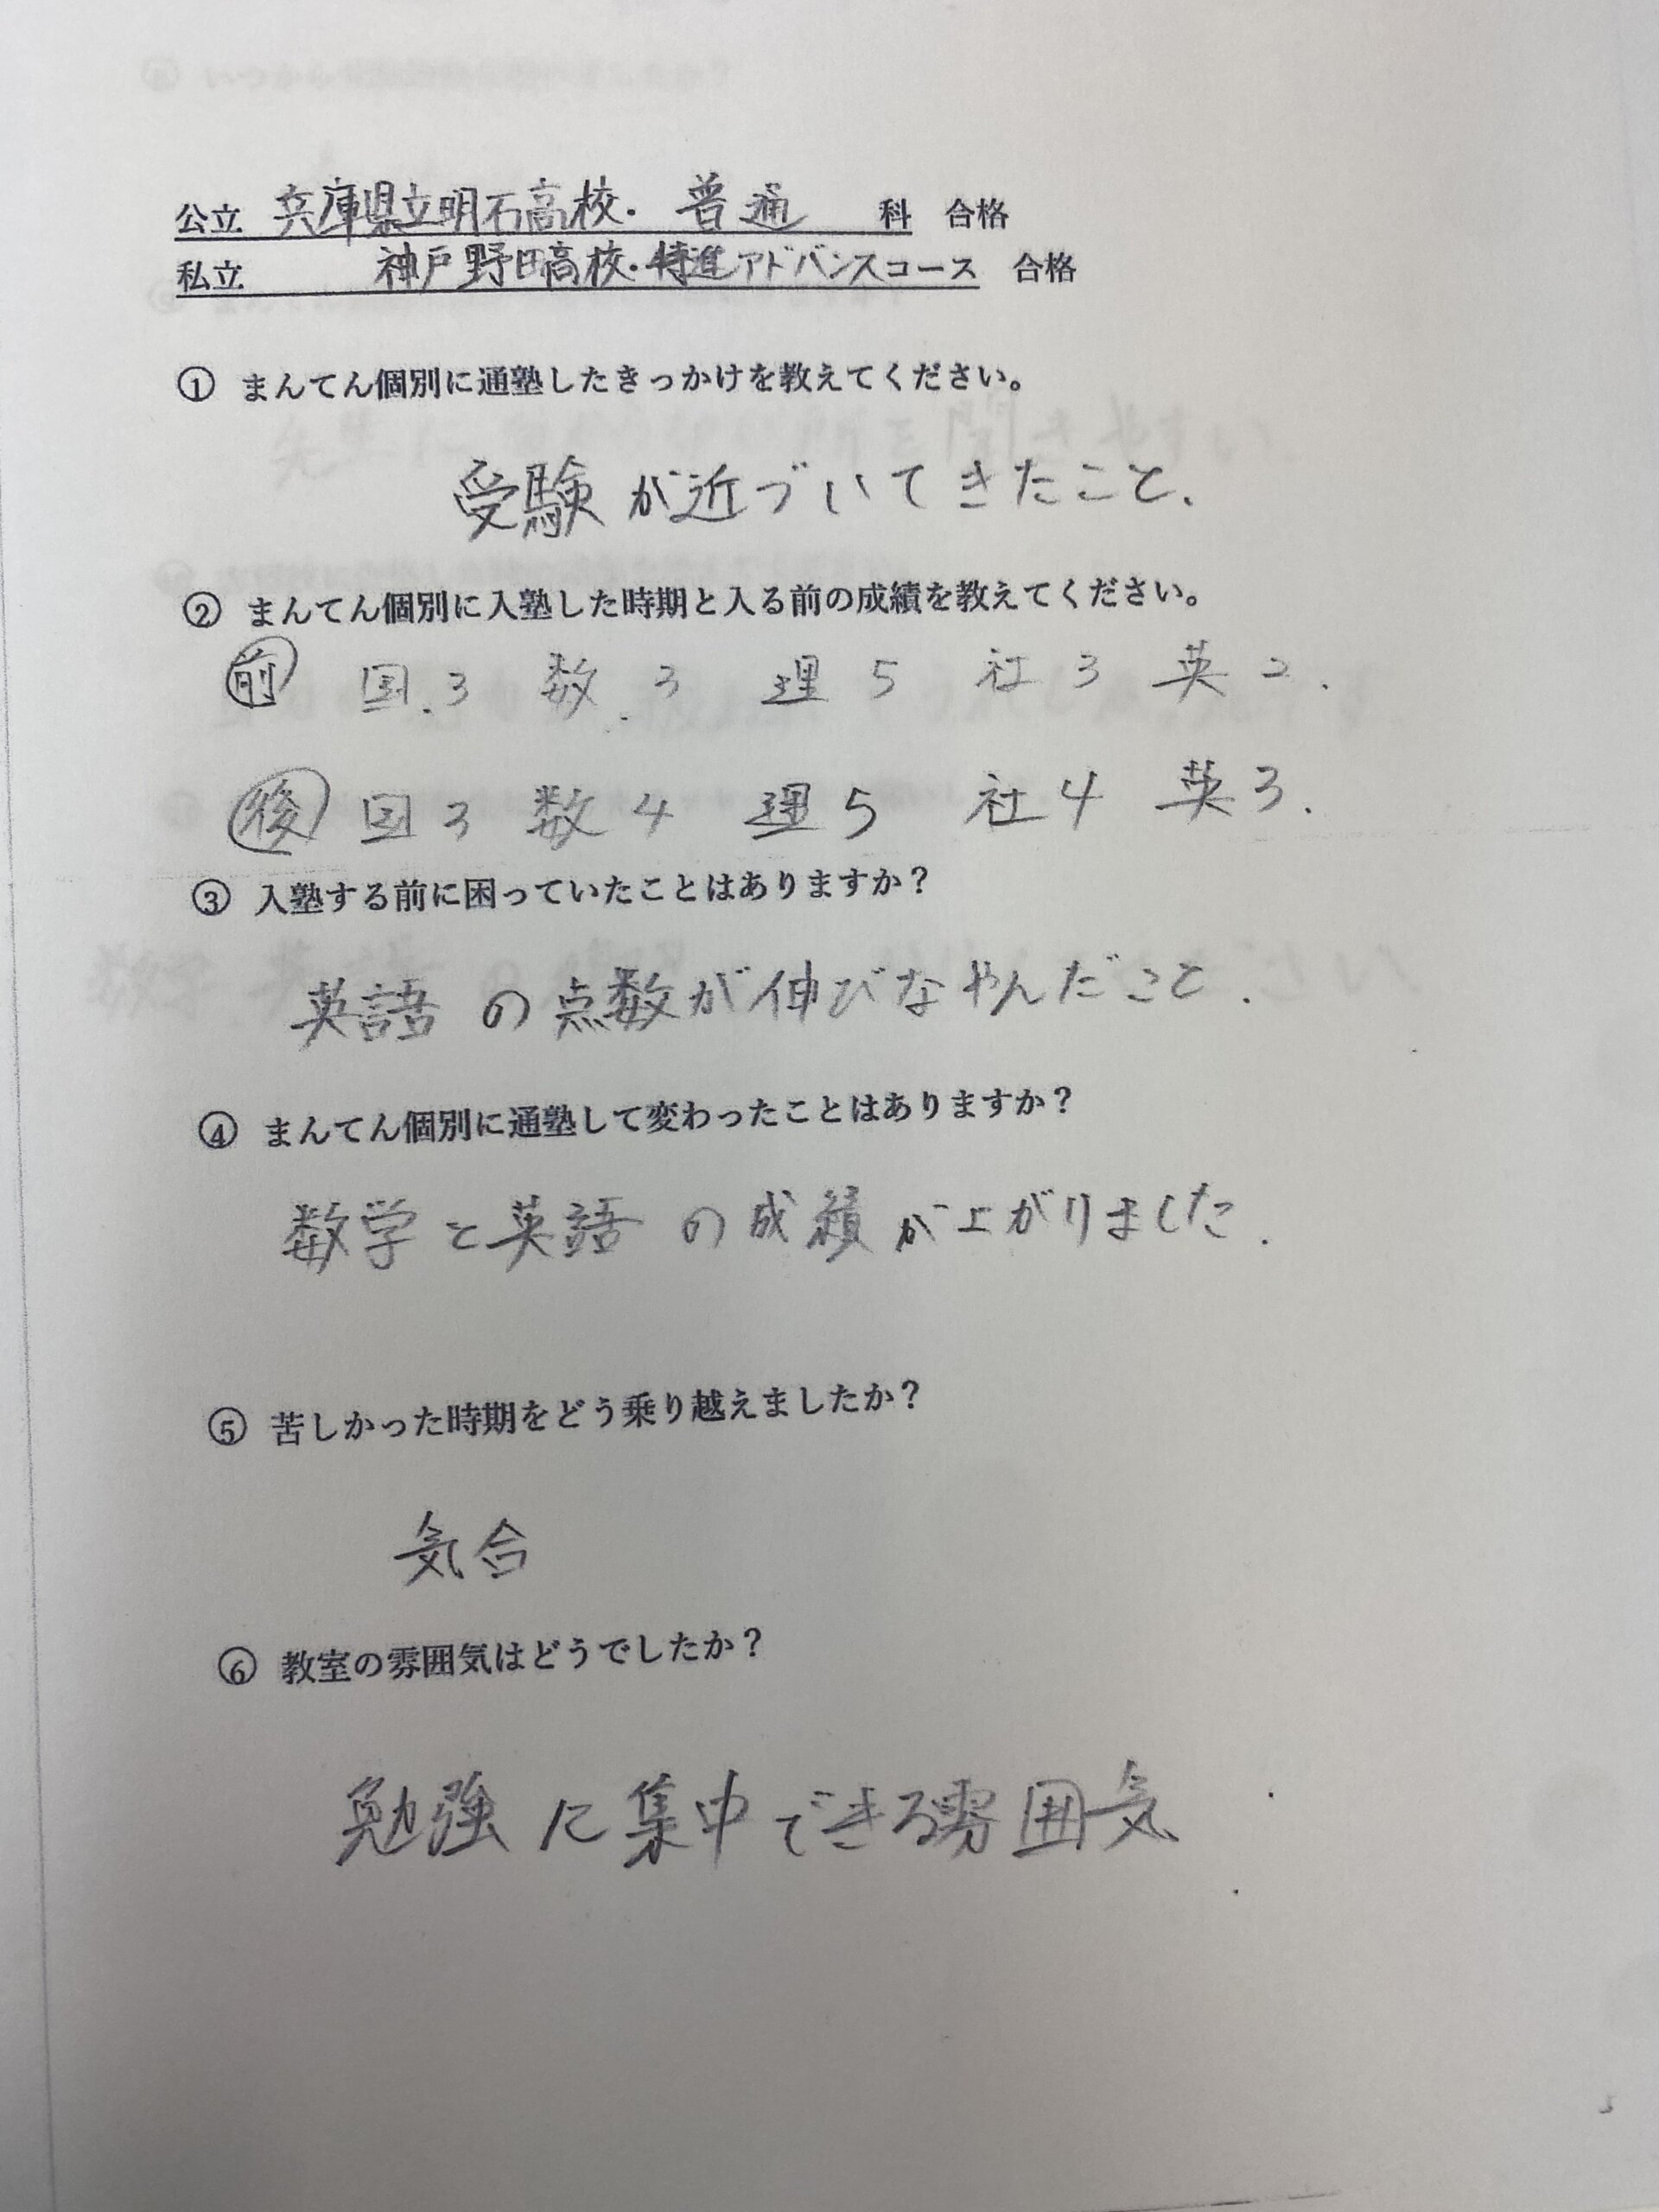 公立 兵庫県立明石高校・普通 科 合格
私立 神戸野田高校・特進アドバンスコース 合格
① まんてん個別に通塾したきっかけを教えてください。
受験が近づいてきたこと.
② まんてん個別に入塾した時期と入る前の成績を教えてください。
前 国.3 数.3 理5 社3 英2.
後 国3 数4 理5 社4 英3.
③ 入塾する前に困っていたことはありますか？
英語の点数が伸びなやんだこと.
④ まんてん個別に通塾して変わったことはありますか？
数学と英語の成績が上がりました.
⑤ 苦しかった時期をどう乗り越えましたか？
気合
⑥ 教室の雰囲気はどうでしたか？
勉強に集中できる雰囲気